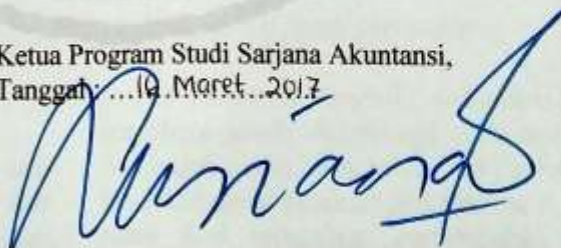 Ketua Program Studi Sarjana Akuntansi,
Tanggal: ... Maret 2017